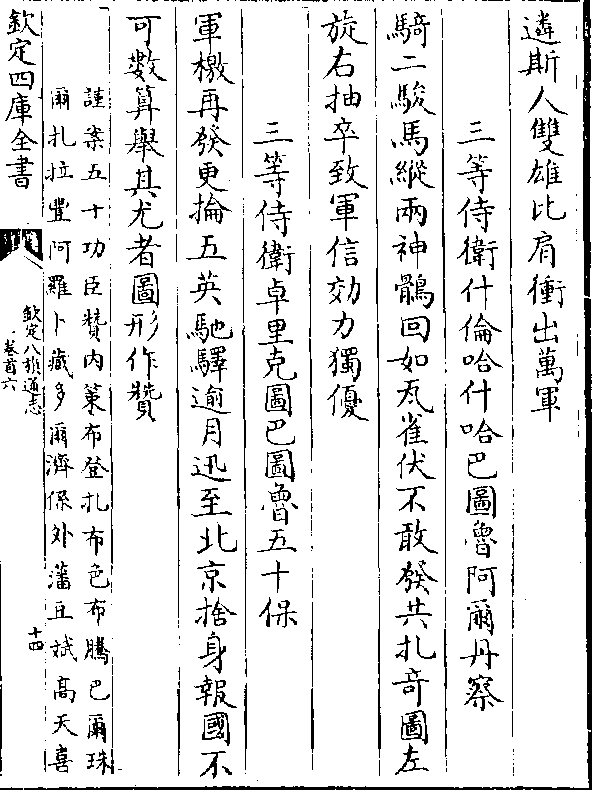 遴斯人雙雄比肩衝出萬軍
三等侍衛什倫哈什哈巴圖魯阿爾丹察
騎二駿馬縱兩神鶻回如瓦雀伏不敢發共扎奇圖左
旋右抽卒致軍信効力獨優
三等侍衛卓里克圖巴圖魯五十保
軍檄再發更掄五英馳驛逾月迅至北京捨身報國不
可數算舉其尤者圖形作贊
謹案五十功臣贊内策布登扎布色布騰巴爾珠
爾扎拉豐阿羅卜藏多爾濟保外藩豆斌高天喜
欽定四庫全書
欽定八旗通志
卷首六
十四